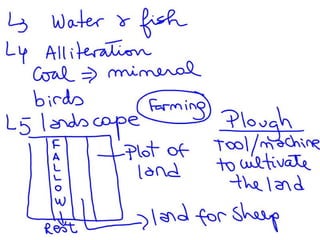 L3 Water & fish
L4 Alliteration
Coal ⇒ mineral
birds
Farming
L5 landscape
FALLOW
Rest
Plot of
land
land for sheep
Plough
Tool/machine
to cultivate
the land